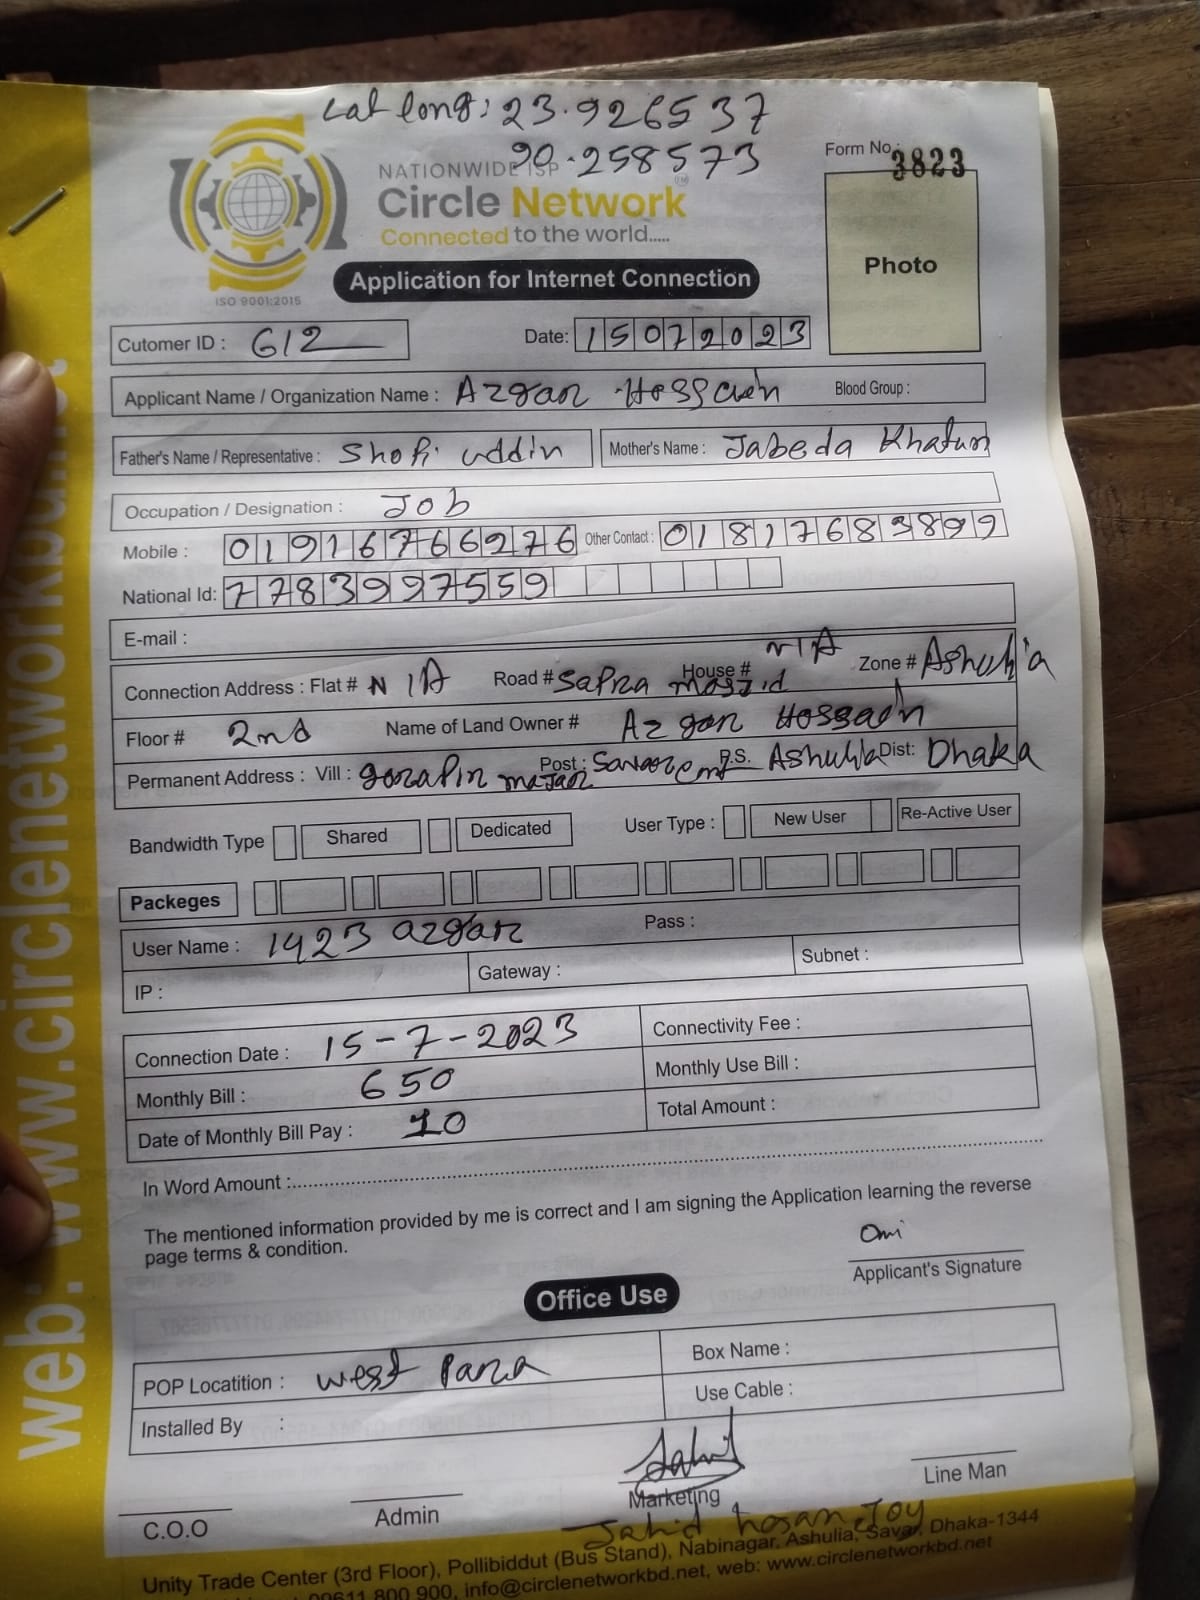 Lat long: 23.926537
90.258573
NATIONWIDE ISP
Circle Network
Connected to the world.....
ISO 9001:2015
Form No.: 3823
Photo
Application for Internet Connection
Cutomer ID : 612
Date: 15072023
Applicant Name / Organization Name : Azgar Hossain
Blood Group :
Father's Name / Representative : Shofi uddin
Mother's Name : Jabeda Khatun
Occupation / Designation : Job
Mobile : 01916766276
Other Contact : 01817683899
National Id: 7783997559
E-mail :
Connection Address : Flat # N/A Road # Sapra Moszid House # N/A Zone # Ashulia
Floor # 2nd Name of Land Owner # Azgar Hossain
Permanent Address : Vill : gorapir majar Post : Savar Cmt P.S. Ashulia Dist: Dhaka
Bandwidth Type Shared Dedicated User Type : New User Re-Active User
Packeges
User Name : 1423 azgar Pass :
IP : Gateway : Subnet :
Connection Date : 15-7-2023 Connectivity Fee :
Monthly Bill : 650 Monthly Use Bill :
Date of Monthly Bill Pay : 10 Total Amount :
In Word Amount :
The mentioned information provided by me is correct and I am signing the Application learning the reverse
page terms & condition.
Omi
Applicant's Signature
Office Use
POP Locatition : west Para Box Name :
Installed By : Use Cable :
Jahid
C.O.O Admin Marketing Line Man
Jahid hosan Joy
Unity Trade Center (3rd Floor), Pollibiddut (Bus Stand), Nabinagar, Ashulia, Savar, Dhaka-1344
09611 800 900, info@circlenetworkbd.net, web: www.circlenetworkbd.net
web: www.circlenetworkbd.net